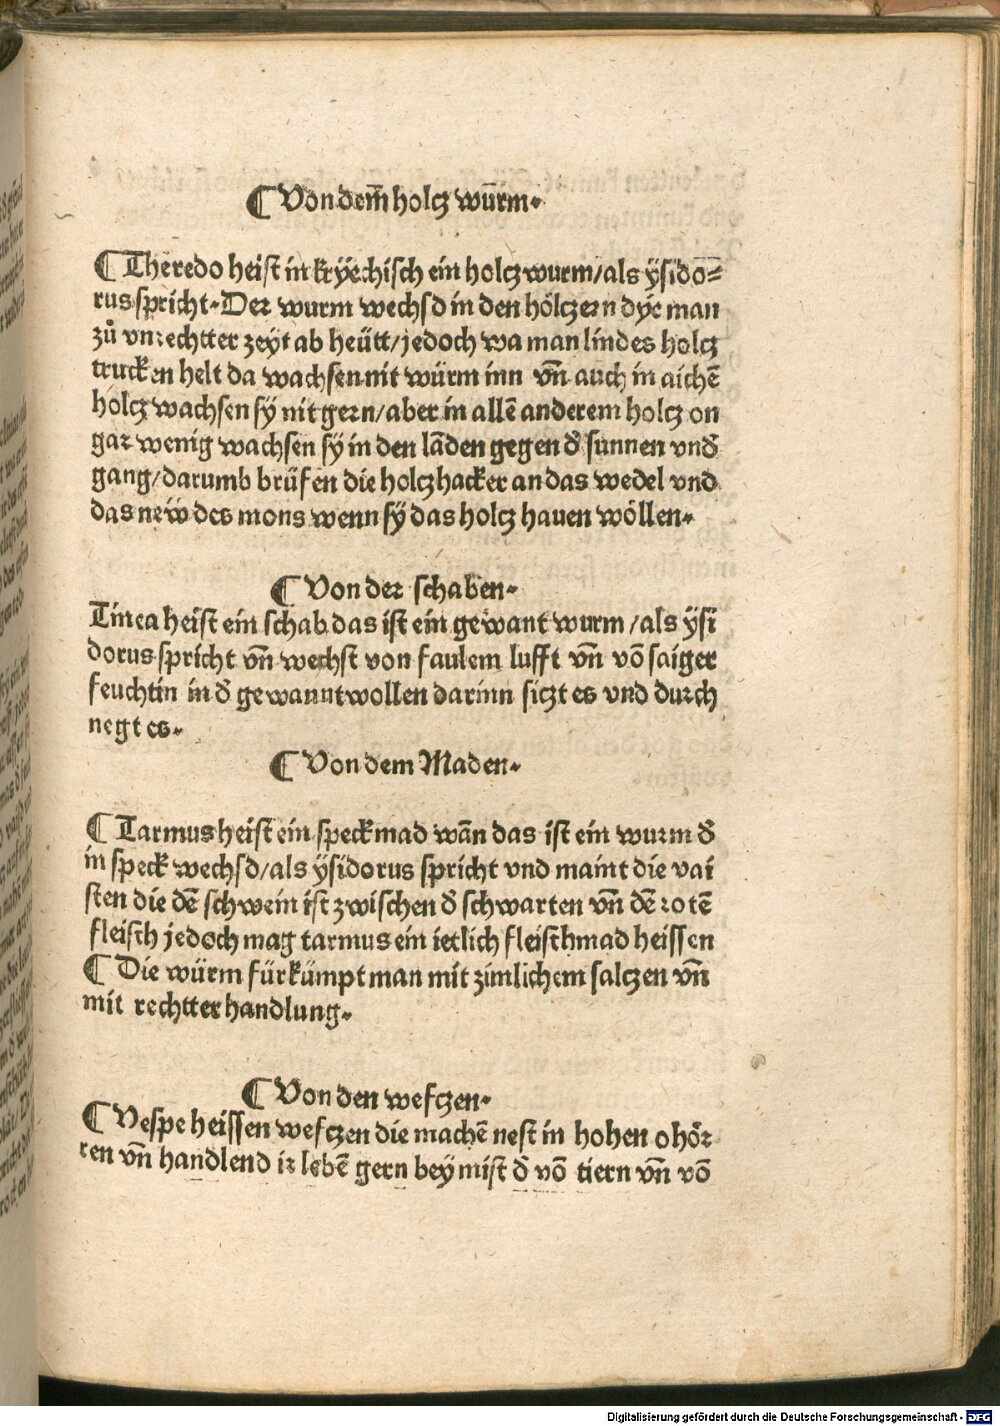 ¶ Von dem̃ holcz wůrm·
¶ Theredo heist in krÿechisch ein holczwurm/als ÿsido⸗
rus spricht·Der wurm wechsd in den hölczern dÿe man
zů vnrechtter zeyt ab heütt/jedoch wa man lindes holcz
trucken helt da wachsen nit würm inn vñ auch in aichẽ
holcz wachsen sÿ nit gern/aber in allẽ anderem holcz on
gar wenig wachsen sÿ in den lãden gegen đ sunnen vnđ
gang/darumb brüfen die holczhacker an das wedel vnd
das neẅ des mons wenn sÿ das holcz hauen wöllen·
¶ Von der schaben·
Tinea heist ein schab das ist ein gewant wurm/als ÿsi
dorus spricht vñ wechst von faulem lufft vñ võ saiger
feuchtin in đ gewanntwollen darinn siczt es vnd durch
negt es·
¶ Von dem Maden·
¶ Tarmus heist ein speckmad wãn das ist ein wurm đ
in speck wechsd/als ÿsidorus spricht vnd maint die vai
sten die dẽ schwein ist zwischen đ schwarten vñ dẽ rotẽ
fleisch jedoch mag tarmus ein ietlich fleischmad heissen
¶ Die würm fürkümpt man mit zimlichem salczen vñ
mit rechtter handlung·
¶ Von den wefczen·
¶ Vespe heissen wefczen die machẽ nest in hohen ohör
ren vñ handlend ir lebẽ gern beÿ mist đ võ tiern vñ võ
Digitalisierung gefördert durch die Deutsche Forschungsgemeinschaft - DFG